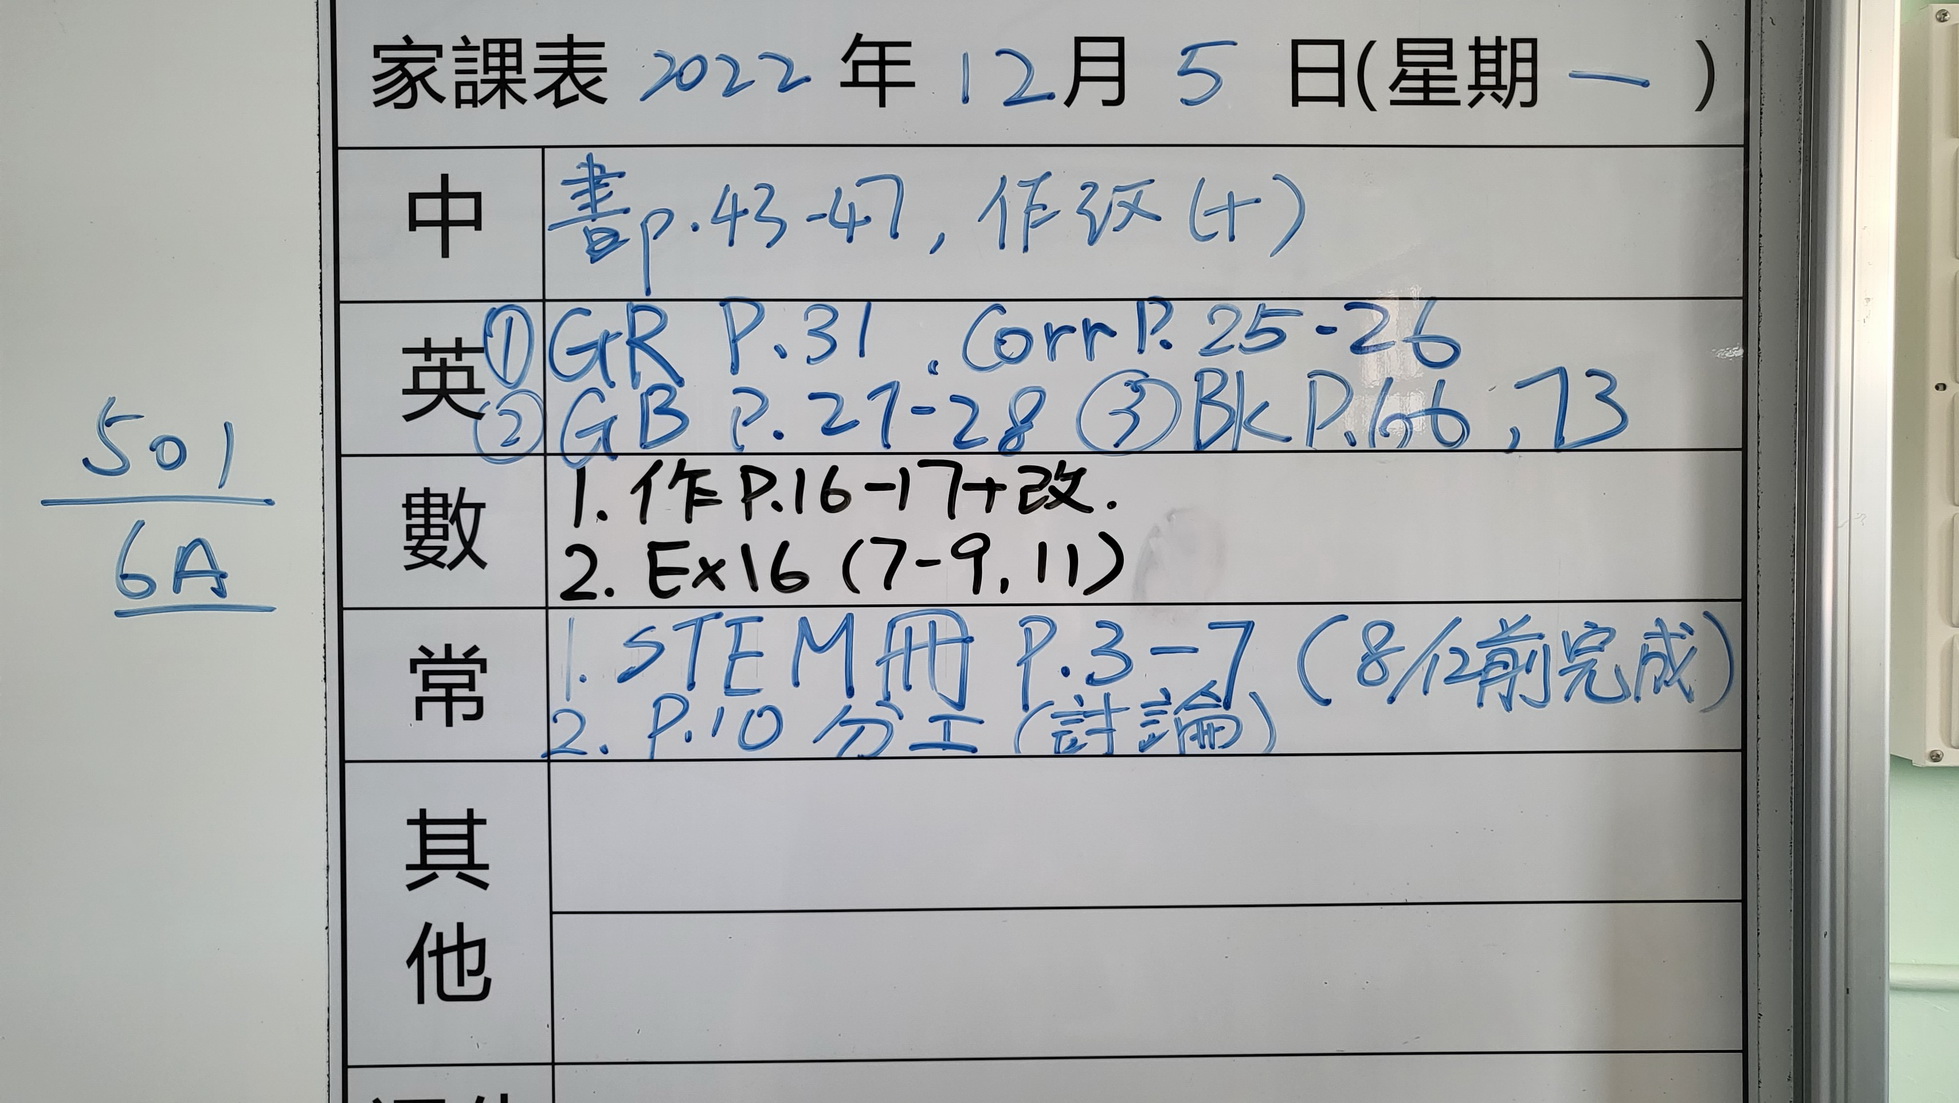 家課表 2022 年 12月 5 日(星期一)
中 書p.43-47, 作改(十)
英 ①GR P.31 . Corr P. 25-26
②GB P.27-28 ③Bk P.66, 73
501
6A
數 1. 作P.16-17+改.
2. Ex16 (7-9, 11)
常 1. STEM冊 P.3-7 (8/12前完成)
2. P.10 分工 (討論)
其他